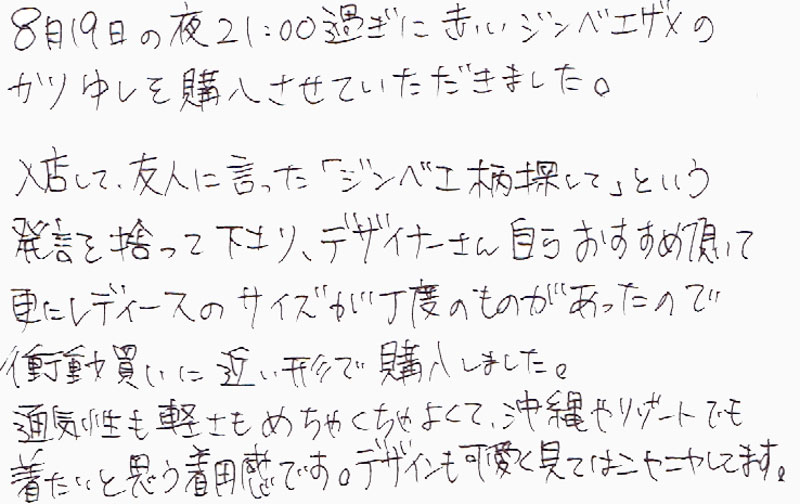 8月19日の夜21:00過ぎに赤いジンベエザメの
かりゆしを購入させていただきました。
入店して、友人に言った「ジンベエ柄探して」という
発言を捨って下さり、デザイナーさん自らおすすめ頂いて
更にレディースのサイズが丁度のものがあったので
衝動買いに近い形で購入しました。
通気性も軽さもめちゃくちゃよくて、沖縄やリゾートでも
着たいと思う着用感です。デザインも可愛く見てはニヤニヤしてます。